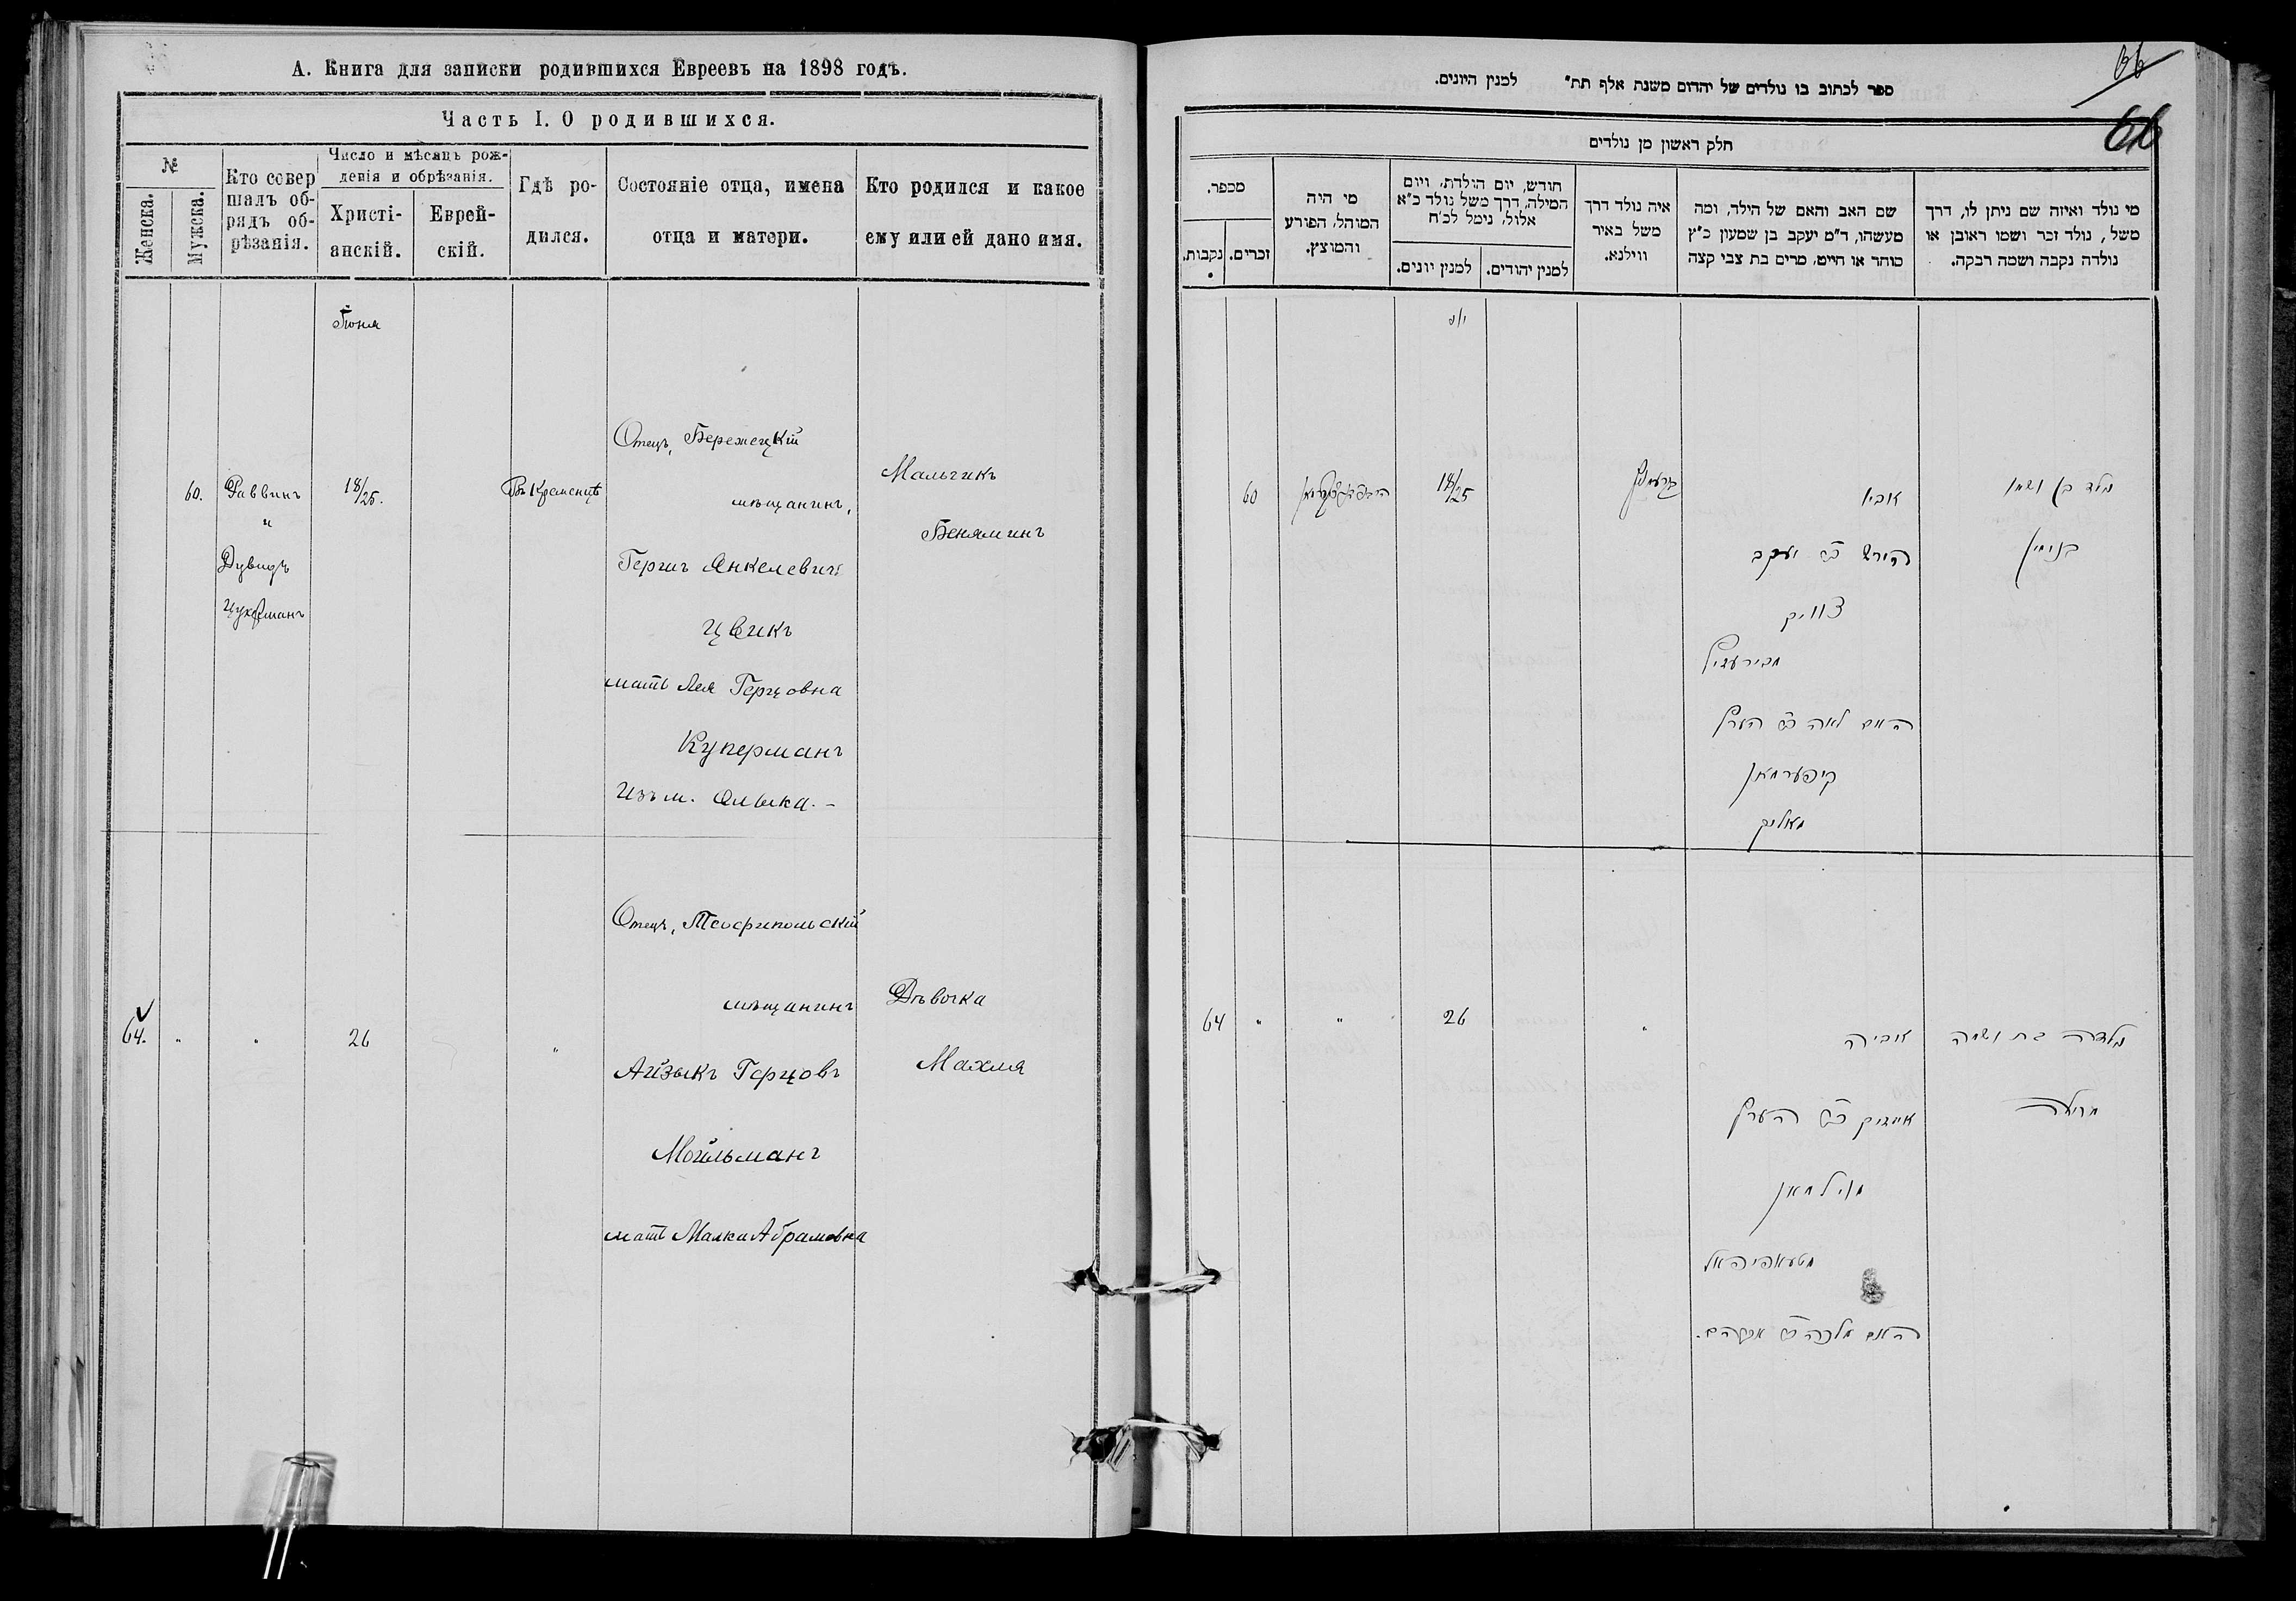 А. Книга для записки родившихся Евреевъ на 1898 годъ.
Часть I. О родившихся.
№
Женска.
Мужска.
Кто совер
шалъ об-
рядъ об-
рѣзанія.
Число и мѣсяцъ рож-
денія и обрѣзанія.
Христі-
анскій.
Еврей-
скій.
Гдѣ ро-
дился.
Состояніе отца, имена
отца и матери.
Кто родился и какое
ему или ей дано имя.
Іюня
60.
Раввинъ
"
Дувидъ
18/25.
Въ Кременцѣ
Отецъ, Бережецкій
мѣщанинъ,
Гершъ Янкелевичъ
Цвикъ
мать Лея Герцовна
Куперманъ
Изъ м. Олыка. –
Мальчикъ
Беняминъ
64.
"
"
26
"
Отецъ, Теофипольскій
мѣщанинъ
Айзыкъ Герцовъ
Мойльманъ
мать Малка Абрамовна
Дѣвочка
Махля
66
66
ספר לכתוב בו נולדים של יהדום משנת אלף תת״ למנין היונים.
חלק ראשון מן נולדים
מי נולד ואיזה שם ניתן לו, דרך
משל, נולד זכר ושמו ראובן או
נולדה נקבה ושמה רבקה.
שם האב והאם של הילד, ומה
מעשהו, ד״מ יעקב בן שמעון כ״ץ
סוחר או חייט, מרים בת צבי קצה
איה נולד דרך
משל באיר
ווילנא.
חודש, יום הולדת, ויום
המילה, דרך משל נולד כ״א
אלול, נימל לכ״ח
למנין יהודים.
למנין יונים.
מי היה
המוהל, הפורע
והמוצץ.
מספר.
זכרים.
נקבות.
נולד בן ושמו
בנימין
אביו
הירש ב״ר יעקב
צוויק
האם לאה ב״ר הערץ
קיפערמאן
18/25
60
נולדה בת ושמה
אביה
אייזיק ב״ר הערץ
מוילמאן
האם מלכה ב״ר אברהם.
"
26
"
"
64